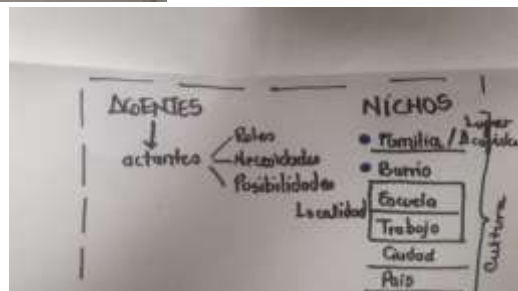 AGENTES
actantes
Roles
Necesidades
Posibilidades
NICHOS
Familia / 
Lugar
Barrio
Localidad
Escuela
Trabajo
Ciudad
País
Cultura